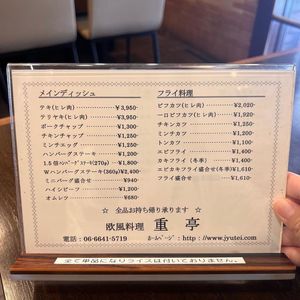 メインディッシュ
テキ(ヒレ肉) ¥3,950-
テリヤキ(ヒレ肉) ¥3,950-
ポークチャップ ¥1,300
チキンチャップ ¥1,250
ミンチエッグ ¥1,250
ハンバーグステーキ ¥1,200
1.5倍ハンバーグステーキ(270g) ¥1,800
Wハンバーグステーキ(360g) ¥2,400
ミニバーグ盛合せ ¥940
ハイシビーフ ¥1,200
オムレツ ¥680
フライ料理
ビフカツ(ヒレ肉) ¥2,020
一口ビフカツ(ヒレ肉) ¥1,920
チキンカツ ¥1,250
ミンチカツ ¥1,200
トンカツ ¥1,100
エビフライ ¥1,400
カキフライ(冬季) ¥1,400
エビカキフライ盛合せ(冬季) ¥1,610
フライ盛合せ ¥1,610
☆ 全品お持ち帰り承ります ☆
欧風料理 重亭
電話:06-6641-5719 ホームページ:http://www.jyutei.com